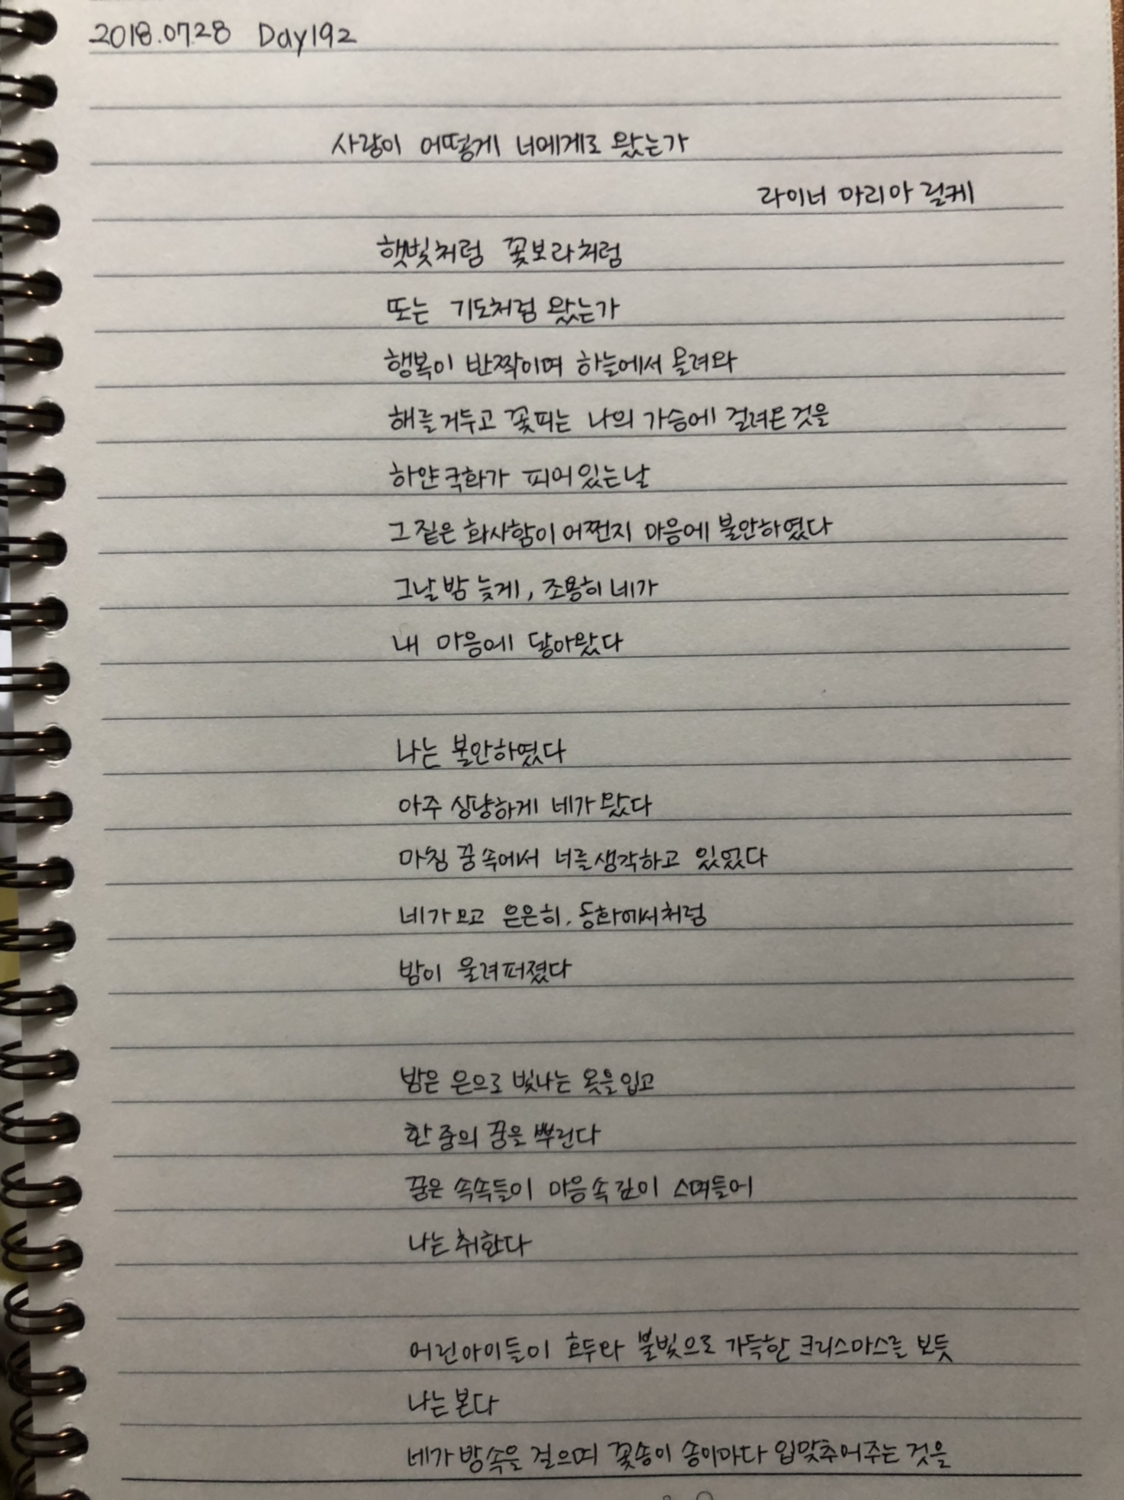 2018.07.28 Day192
사랑이 어떻게 너에게로 왔는가
라이너 마리아 릴케
햇빛처럼 꽃보라처럼
또는 기도처럼 왔는가
행복이 반짝이며 하늘에서 몰려와
해를 거두고 꽃피는 나의 가슴에 걸려온 것을
하얀 국화가 피어있는 날
그 짙은 화사함이 어쩐지 마음에 불안하였다
그날 밤 늦게, 조용히 네가
내 마음에 닿아왔다
나는 불안하였다
아주 상냥하게 네가 왔다
마침 꿈 속에서 너를 생각하고 있었다
네가 오고 은은히, 동화에서처럼
밤이 울려 퍼졌다
밤은 은으로 빛나는 옷을 입고
한 줌의 꿈을 뿌린다
꿈은 속속들이 마음 속 깊이 스며들어
나는 취한다
어린 아이들이 호두와 불빛으로 가득한 크리스마스를 보듯
나는 본다
네가 밤 속을 걸으며 꽃송이 송이마다 입맞추어 주는 것을